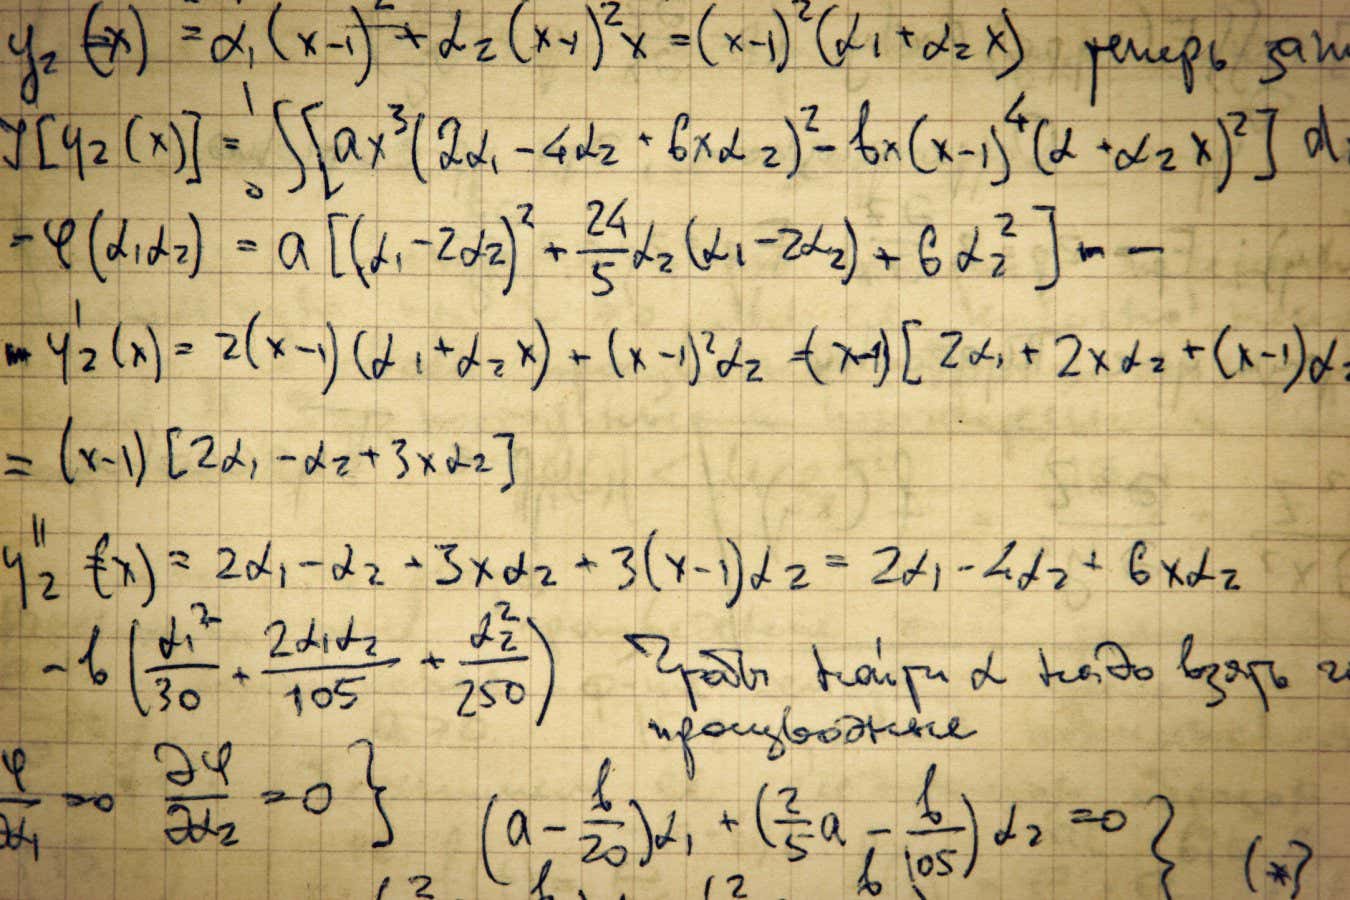 y₂(x) = α₁(x-1)² + α₂(x-1)²x = (x-1)²(α₁ + α₂x) теперь
J[y₂(x)] = ∫₀¹[ax³(2α₁ - 4α₂ + 6xα₂)² - bx(x-1)⁴(α + α₂x)²]
= φ(α₁α₂) = a[(α₁ - 2α₂)² + 24/5 α₂(α₁ - 2α₂) + 6α₂²] - -
y₂'(x) = 2(x-1)(α₁ + α₂x) + (x-1)²α₂ = (x-1)[2α₁ + 2xα₂ + (x-1)α₂
= (x-1)[2α₁ - α₂ + 3xα₂]
y₂''(x) = 2α₁ - α₂ + 3xα₂ + 3(x-1)α₂ = 2α₁ - 4α₂ + 6xα₂
- b(α₁²/30 + 2α₁α₂/105 + α₂²/250) Чтобы найти α надо взять
производные
φ/∂α₁ = 0 ∂φ/∂α₂ = 0 } (a - b/20)α₁ + (2/5 a - b/105)α₂ = 0 } (*)